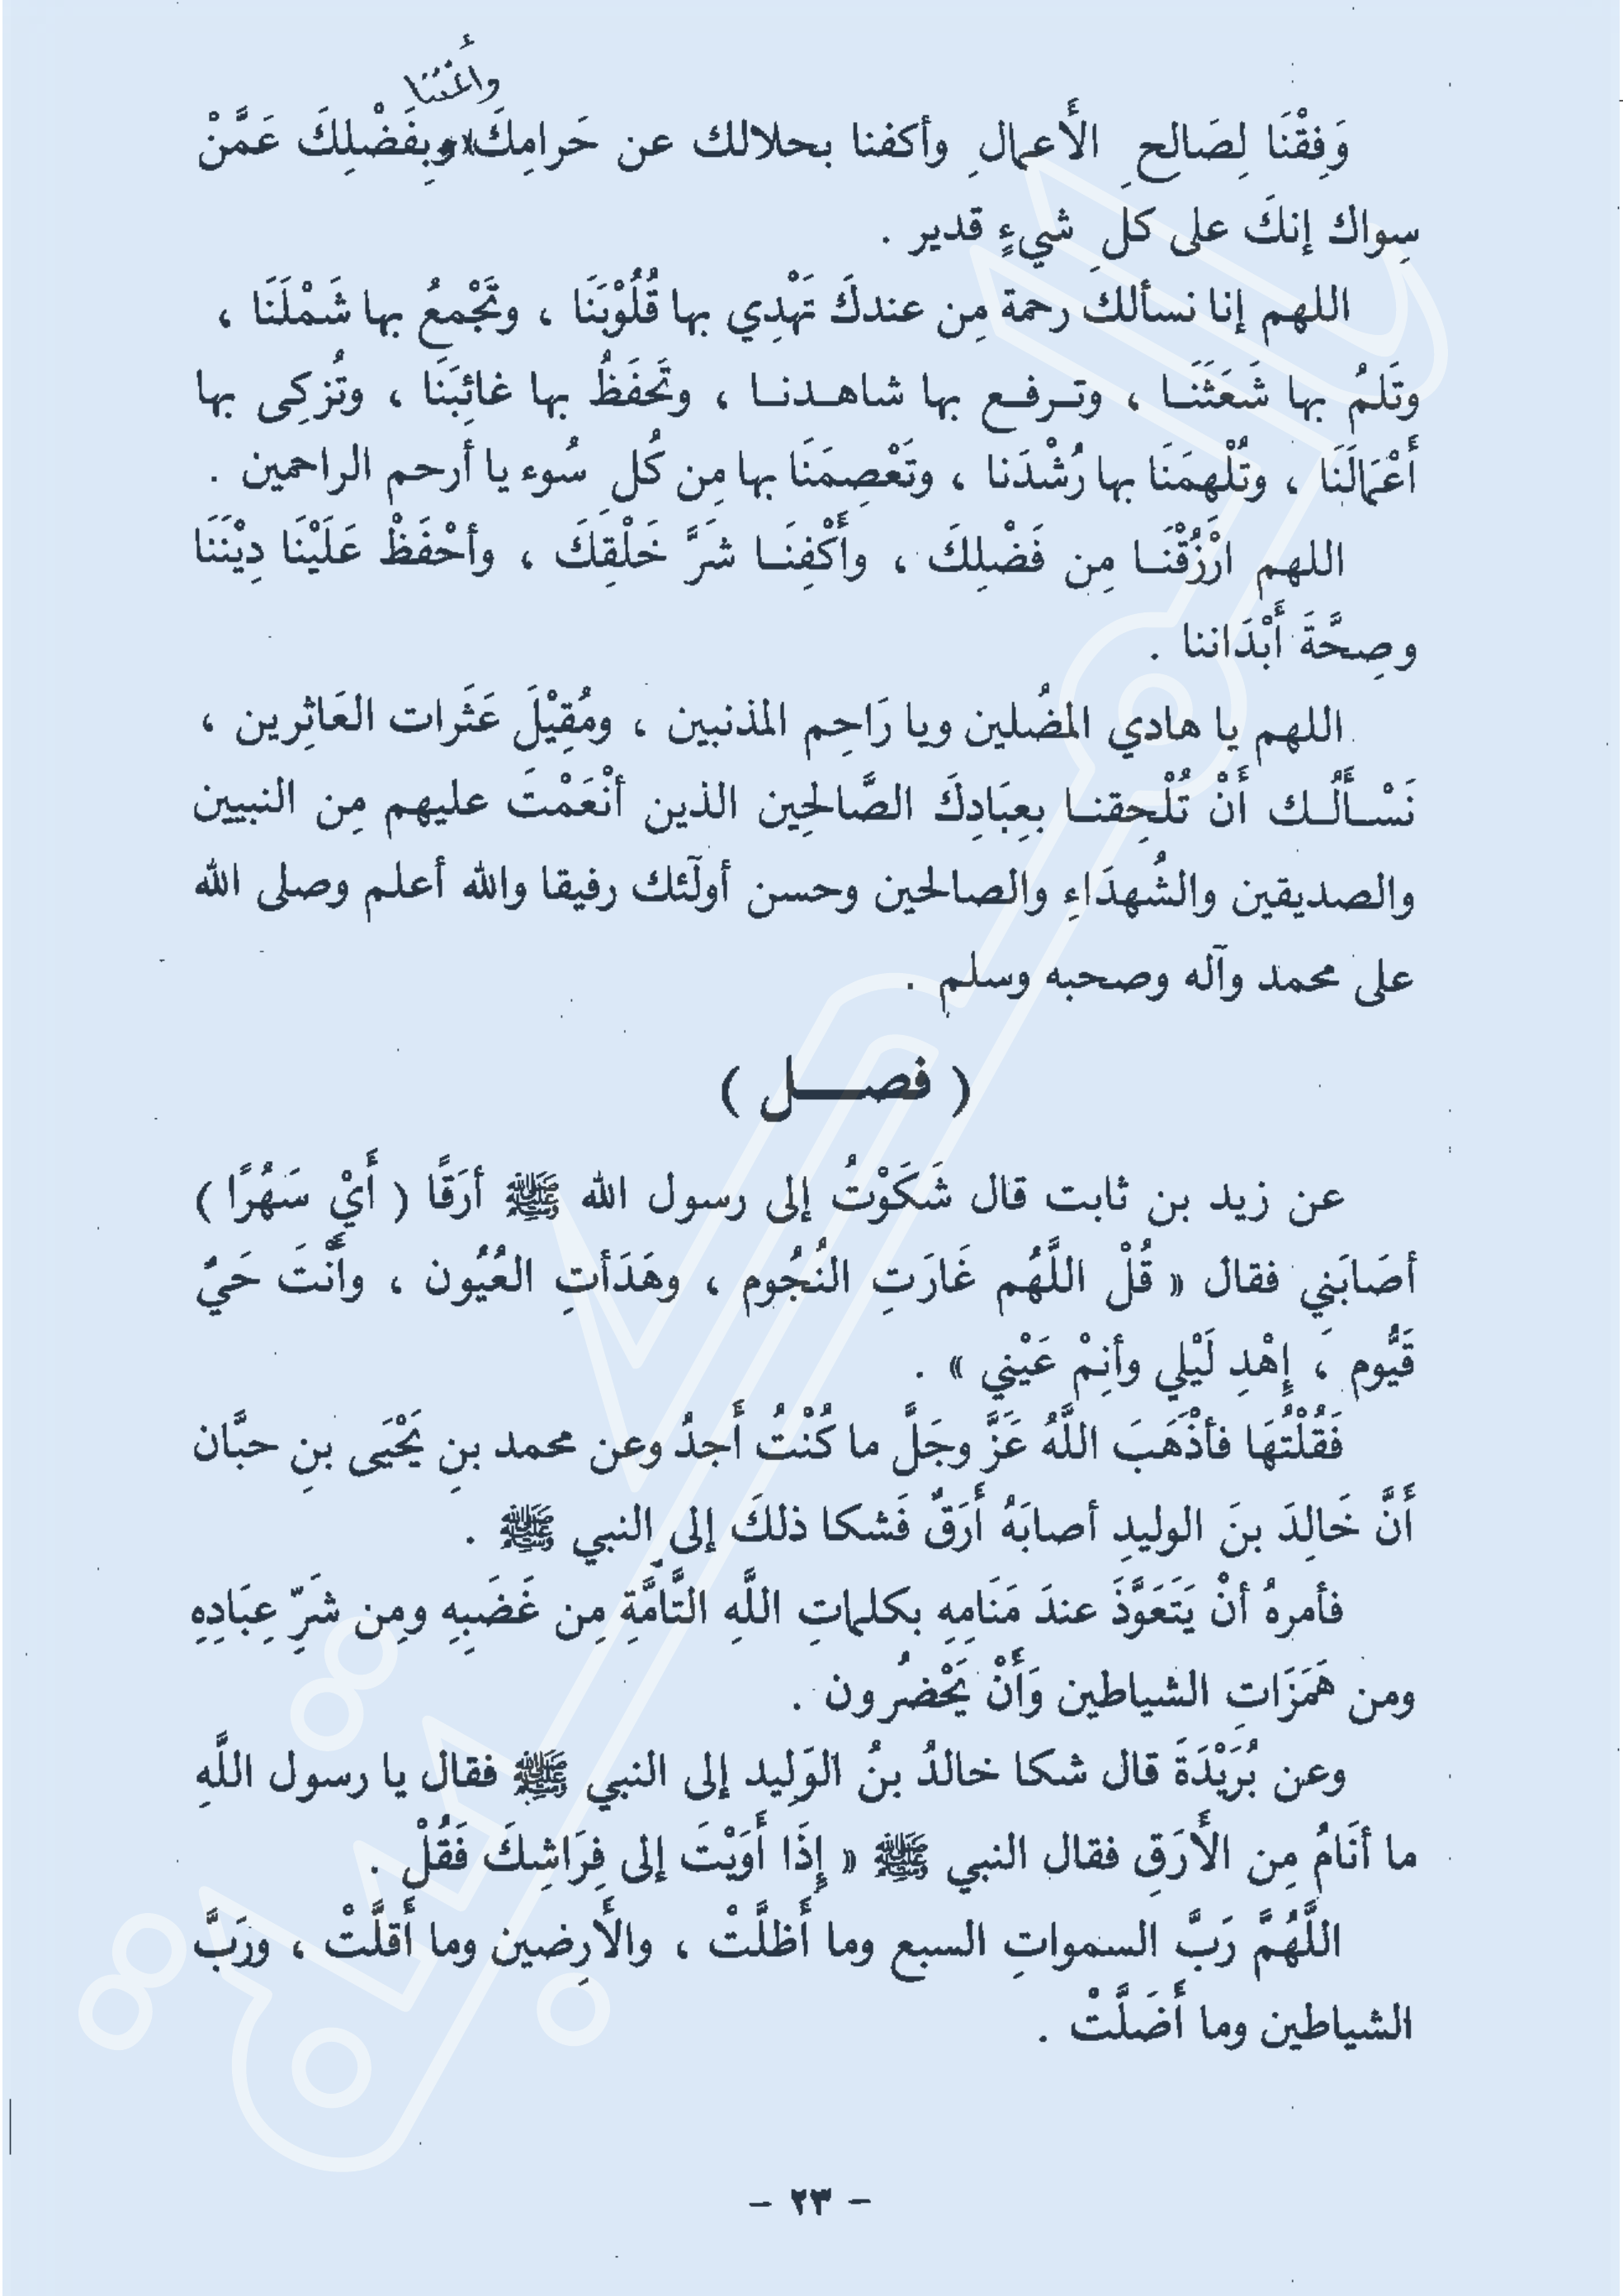 وأغننا
وَفِقْنَا لِصَالِحِ الأَعمالِ وأكفنا بحلالك عن حَرامِكَ وبِفَضْلِكَ عَمَّنْ
سِواك إنكَ على كلِ شيءٍ قدير .
اللهم إنا نسألك رحمة مِن عندكَ تَهْدِي بها قُلُوْبَنَا ، وتَجْمعُ بها شَمْلَنَا ،
وتَلمُ بها شَعَثَنَـا ، وتـرفـع بها شاهـدنـا ، وتَحفَظُ بها غائِبَنَا ، وتُزكِى بها
أَعْمَالَنَا ، وتُلْهِمَنَا بها رُشْدَنا ، وتَعْصِمَنَا بها مِن كُلِ سُوء يا أرحم الراحمين .
اللهم ارْزُقْنَـا مِن فَضْلِكَ ، وأَكْفِنَـا شَرَّ خَلْقِكَ ، وأحْفَظْ عَلَيْنَا دِيْنَنَا
وصِحَّةَ أَبْدَاننا .
اللهم يا هادي المضُلين ويا رَاحِم المذنبين ، ومُقِيْلَ عَثَرات العَاثِرين ،
نَسْـأَلُـك أَنْ تُلْحِقنـا بعِبَادِكَ الصَّالحِين الذين أنْعَمْتَ عليهم مِن النبيين
والصديقين والشُهدَاءِ والصالحين وحسن أولَئك رفيقا والله أعلم وصلى الله
على محمد وآله وصحبه وسلم .
( فصـــل )
عن زيد بن ثابت قال شَكَوْتُ إلى رسول الله ﷺ أرَقًا ( أَيْ سَهُرًا )
أصَابَنِي فقال « قُلْ اللَّهُم غَارَتِ النُجُوم ، وهَدَأتِ العُيُون ، وأَنْتَ حَيٌ
قَيُّوم ، إِهْدِ لَيْلي وأنِمْ عَيْني » .
فَقُلْتُهَا فأذْهَبَ اللَّهُ عَزَّ وجَلَّ ما كُنْتُ أَجدُ وعن محمد بنِ يَحْيَى بنِ حبَّان
أَنَّ خَالِدَ بنَ الوليدِ أصابَهُ أَرَقٌ فَشكا ذلكَ إلى النبي ﷺ .
فأمرهُ أنْ يَتَعَوَّذَ عندَ مَنَامِهِ بكلماتِ اللَّهِ التَّامَّةِ مِن غَضَبِهِ ومِن شَرِّ عِبَادِهِ
ومن هَمَزَاتِ الشياطين وَأَنْ يَحْضرُون .
وعن بُرَيْدَةَ قال شكا خالدُ بنُ الوَلِيد إلى النبي ﷺ فقال يا رسول اللَّهِ
ما أنَامُ مِن الأَرَقِ فقال النبي ﷺ « إِذَا أَوَيْتَ إلى فِرَاشِكَ فَقُلْ .
اللَّهُمَّ رَبَّ السمواتِ السبع وما أَظلَّتْ ، والأَرِضين وما أَقلَّتْ ، ورَبَّ
الشياطين وما أَضَلَّتْ .
– ٢٣ –